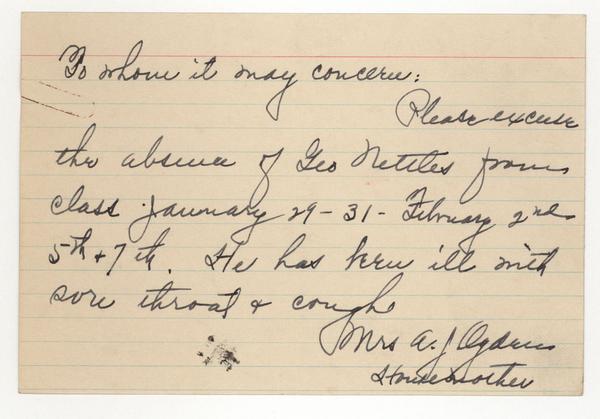 To whom it may concern:
Please excuse
the absence of Geo Nettles from
class January 29 - 31 - February 2nd
5th + 7th. He has been ill with
sore throat & cough
Mrs A. J Ogden
Housemother